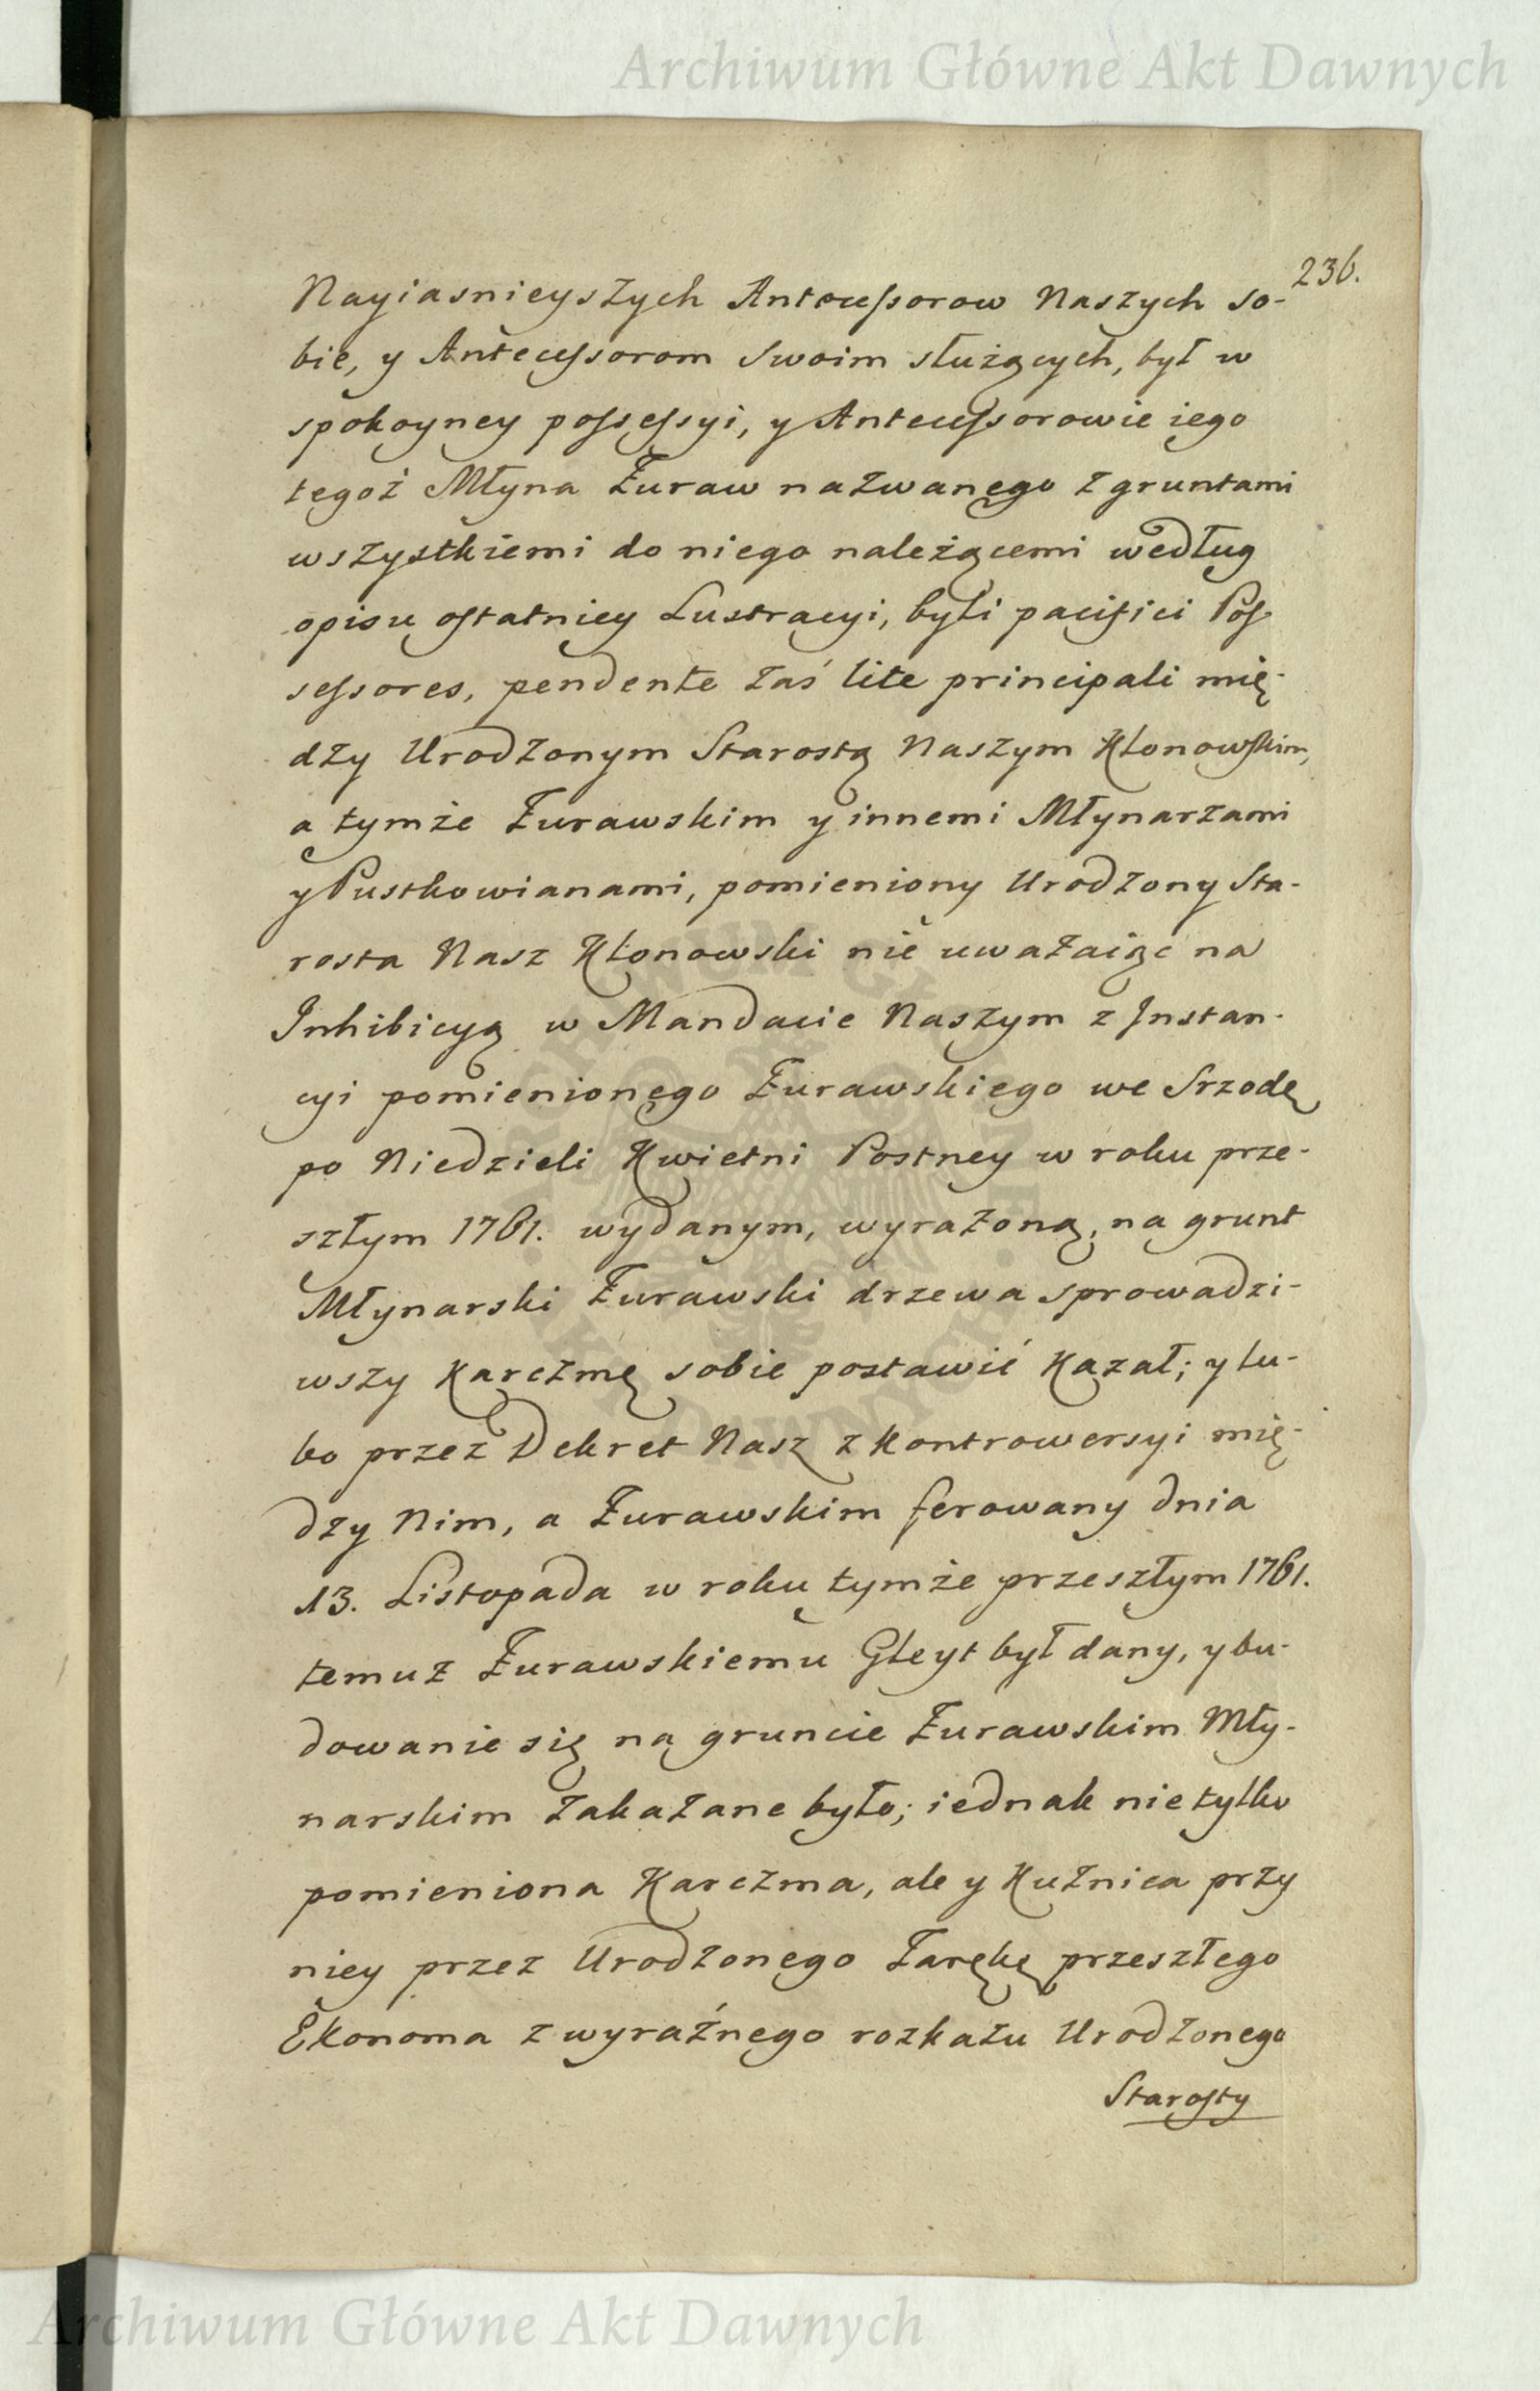 Archiwum Główne Akt Dawnych
236.
Nayiasnieyszych Antecessorow Naszych so-
bie, y Antecessorom swoim służących, był w
spokoyney possessyi, y Antecessorowie iego
tegoż Młyna Żuraw nazwanego z gruntami
wszystkiemi do niego należącemi według
opisu ostatniey Lustracyi, byli pacifici Pos
sessores, pendente zaś lite principali mię-
dzy Urodzonym Starostą Naszym Kłonowskim,
a tymże Żurawskim y innemi Młynarzami
y Pustkowianami, pomieniony Urodzony Sta-
rosta Nasz Kłonowski nie uważaiąc na
Inhibicyą w Mandacie Naszym z Instan-
cyi pomienionego Żurawskiego we Srzodę
po Niedzieli Kwietni Postney w roku prze-
szłym 1761. wydanym, wyrażoną, na grunt
Młynarski Żurawski drzewa sprowadzi-
wszy Karczmę sobie postawić Kazał; y lu-
bo przez Dekret Nasz z kontrowersyi mię-
dzy Nim, a Żurawskim ferowany dnia
13. Listopada w roku tymże przeszłym 1761.
temuz Żurawskiemu Gleyt był dany, y bu-
dowanie się na gruncie Żurawskim Mły-
narskim zakazane było; iednak nie tylko
pomieniona Karczma, ale y Kuźnica przy
niey przez Urodzonego Zarękę przeszłego
Ekonoma z wyraźnego rozkazu Urodzonego
Starosty
Archiwum Główne Akt Dawnych